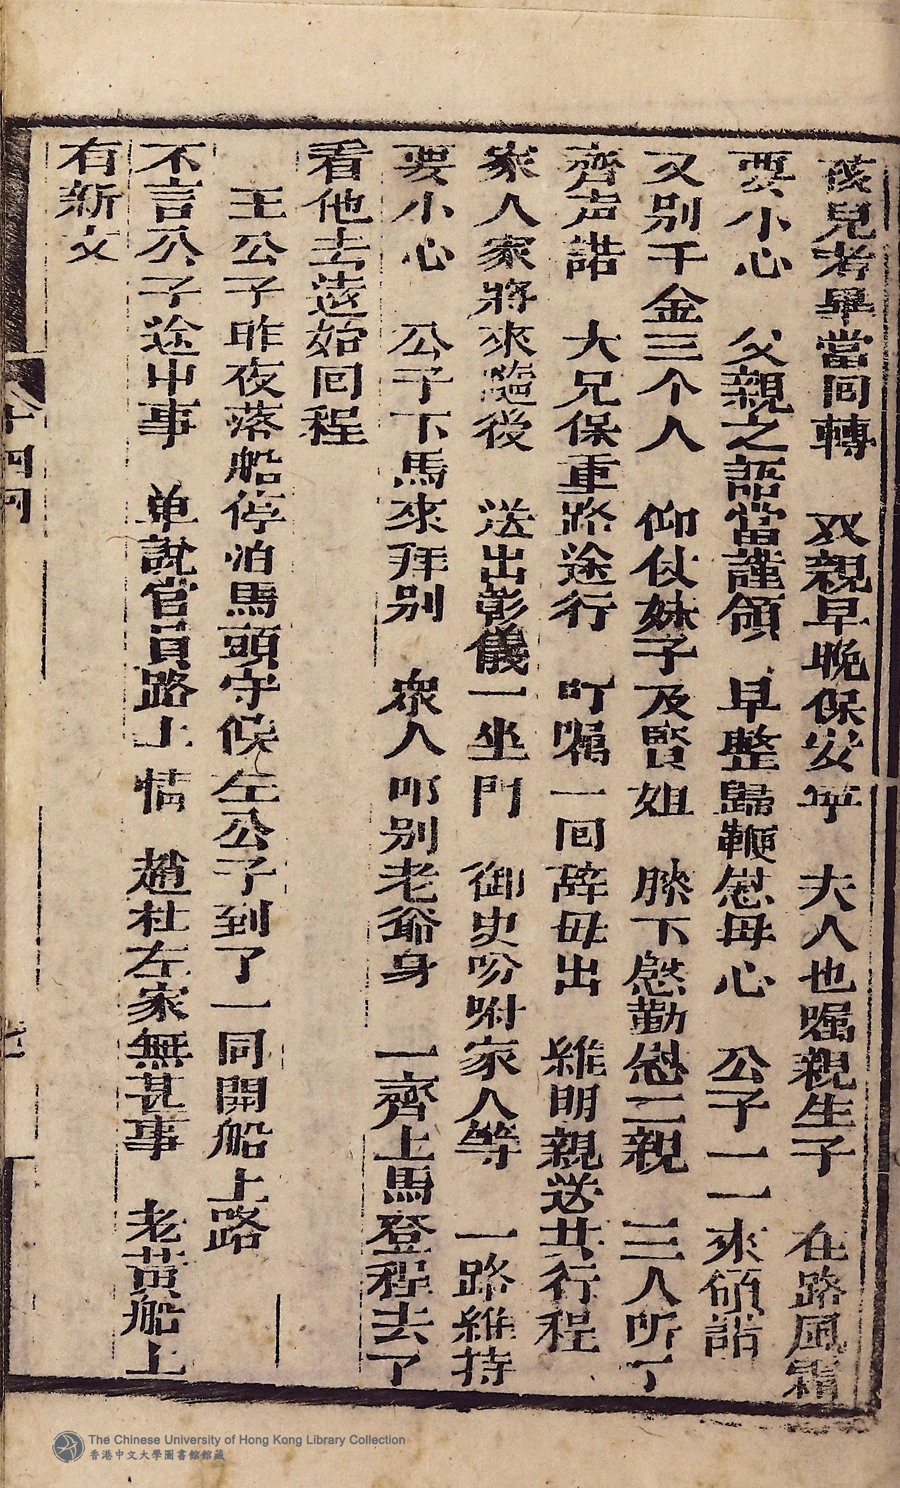 孩兒考畢當囘轉　双親早晚保安寧　夫人也嘱親生子　在路風霜
要小心　父親之語當謹領　早整歸鞭慰母心　公子一一來領諾
又别千金三个人　仰仗妹子及賢姐　膝下慇勤慰二親　三人听了
齊声諾　大兄保重路途行　叮嘱一囘辞母出　維明親送共行程
家人家將來隨後　送出彰儀一坐門　御史吩咐家人等　一路維持
要小心　公子下馬來拜别　衆人叩别老爺身　一齊上馬登程去了
看他去遠始囘程
王公子昨夜落船停泊馬頭守候左公子到了一同開船上路
不言公子途中事　单說官員路上情　趙杜左家無甚事　老黃船上
有新文
十四囘
The Chinese University of Hong Kong Library Collection
香港中文大學圖書館館藏